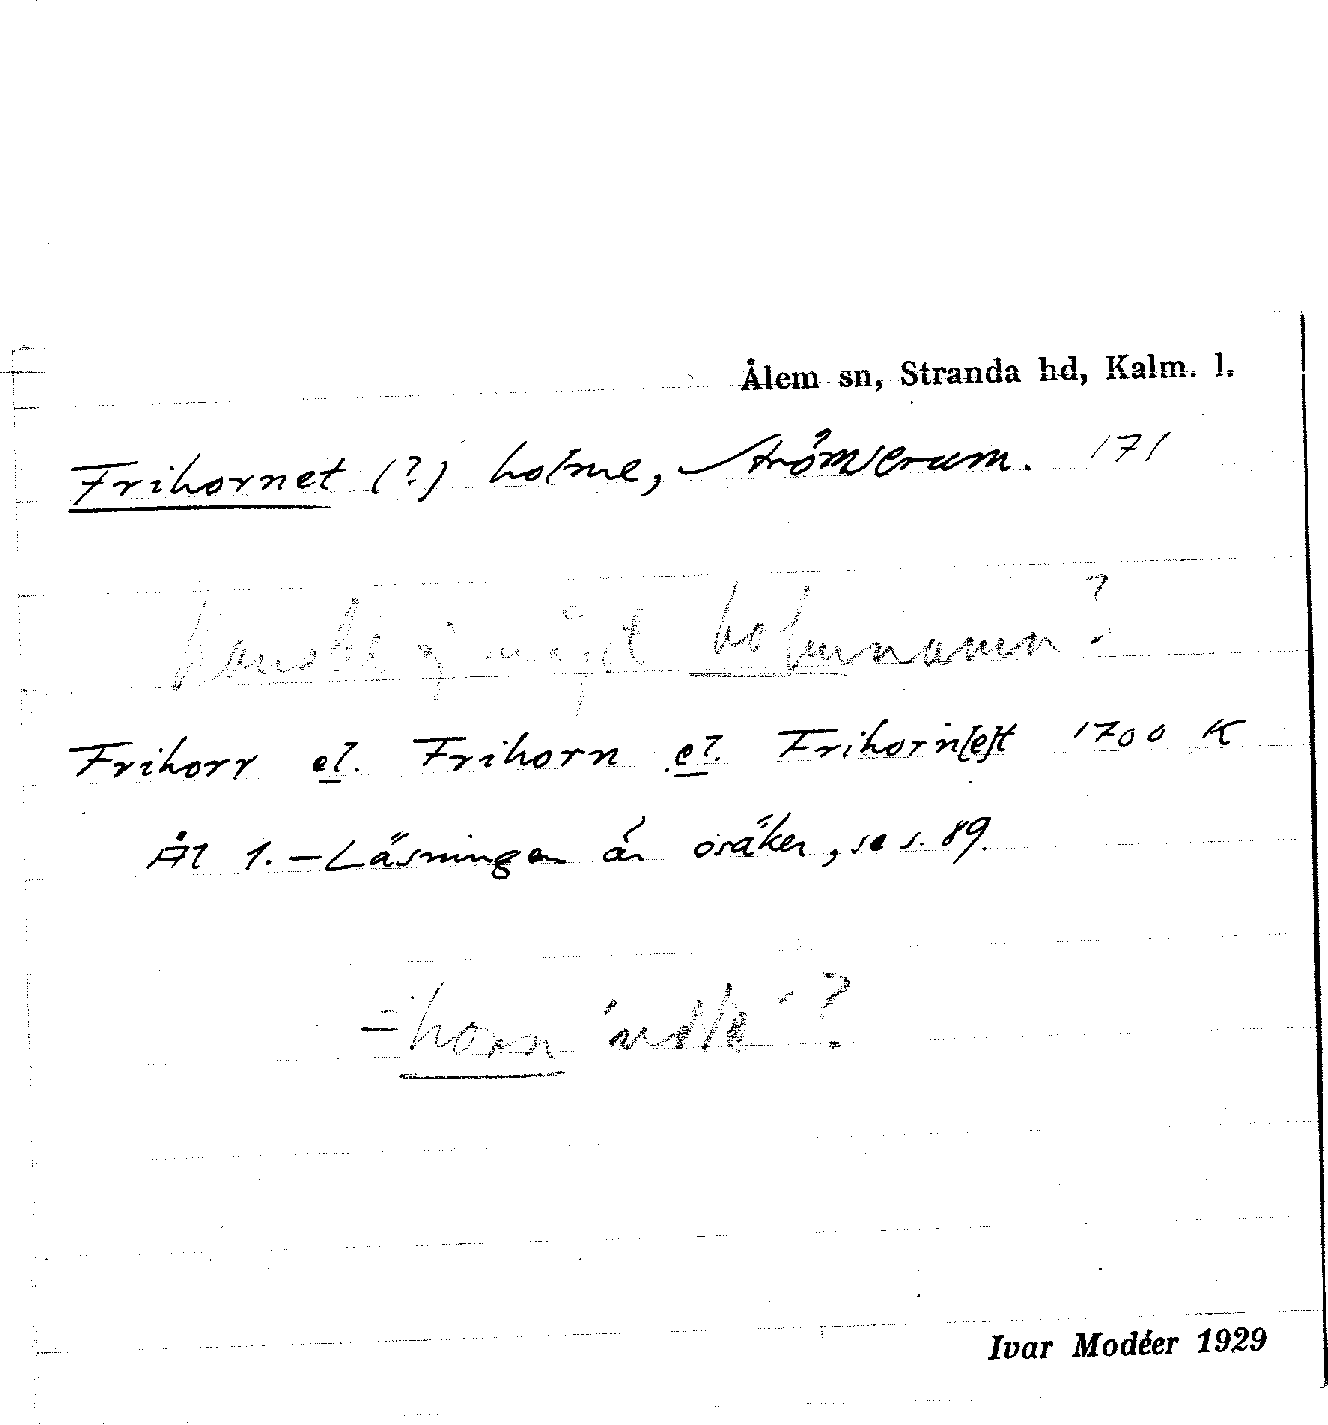 Ålem sn, Stranda hd, Kalm. l.
Frihornet (?) holme, Strömserum. 171
kanske ej något holmnamn?
Frihorr el. Frihorn el. Frihorn[e]t 1700 K
Ål 1. – Läsningen är osäker, se s. 89.
-horn 'udde'?
Ivar Modéer 1929